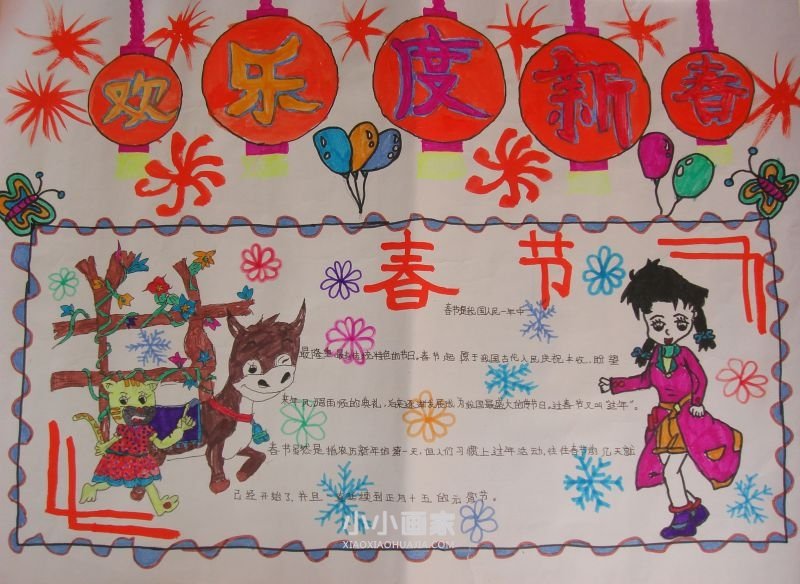 欢乐度新春
春节
春节是我国人民一年中
最隆重最富传统特色的节日。春节起源于我国古代人民庆祝丰收、盼望
来年风调雨顺的典礼,后来逐渐发展成为我国最盛大的节日。过春节又叫“过年”。
春节虽然是指农历新年的第一天,但人们习惯上过年活动,往往春节前几天就
已经开始了,并且一直延续到正月十五的元宵节。
小小画家
XIAOXIAOHUAJIA.COM